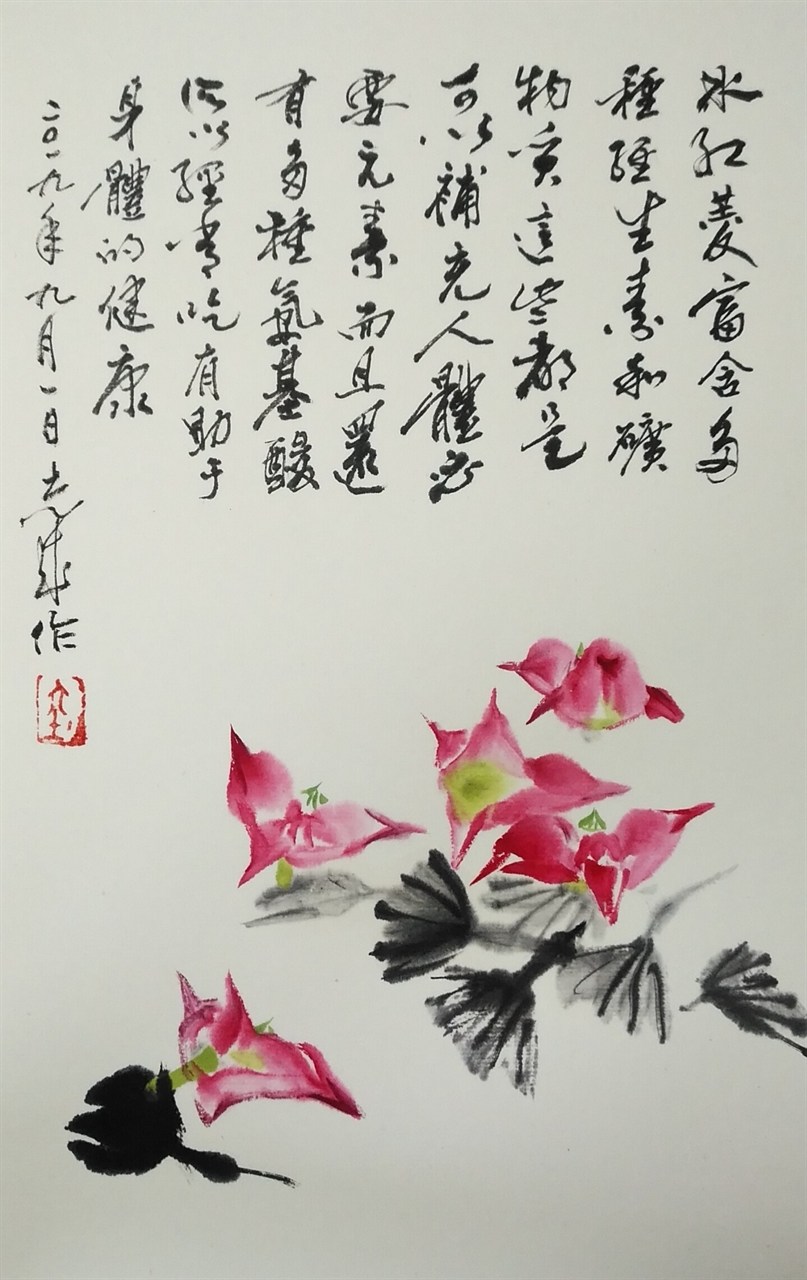 水红菱富含多
種维生素和礦
物质這些都是
可以補充人體必
要元素而且還
有多種氨基酸
所以經常吃有助于
身體的健康
二〇一九年九月一日志成作